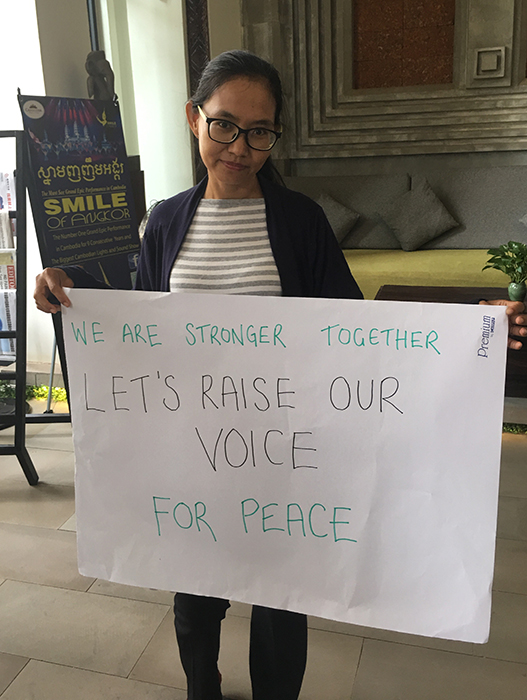 ស្នាមញញឹមអង្គរ
The Must See Grand Epic Performance in Cambodia
SMILE
OF ANGKOR
The Number One Grand Epic Performance
in Cambodia for 9 Consecutive Years and
The Biggest Cambodian Lights and Sound Show
WE ARE STRONGER TOGETHER
Premium
LET'S RAISE OUR
VOICE
FOR PEACE